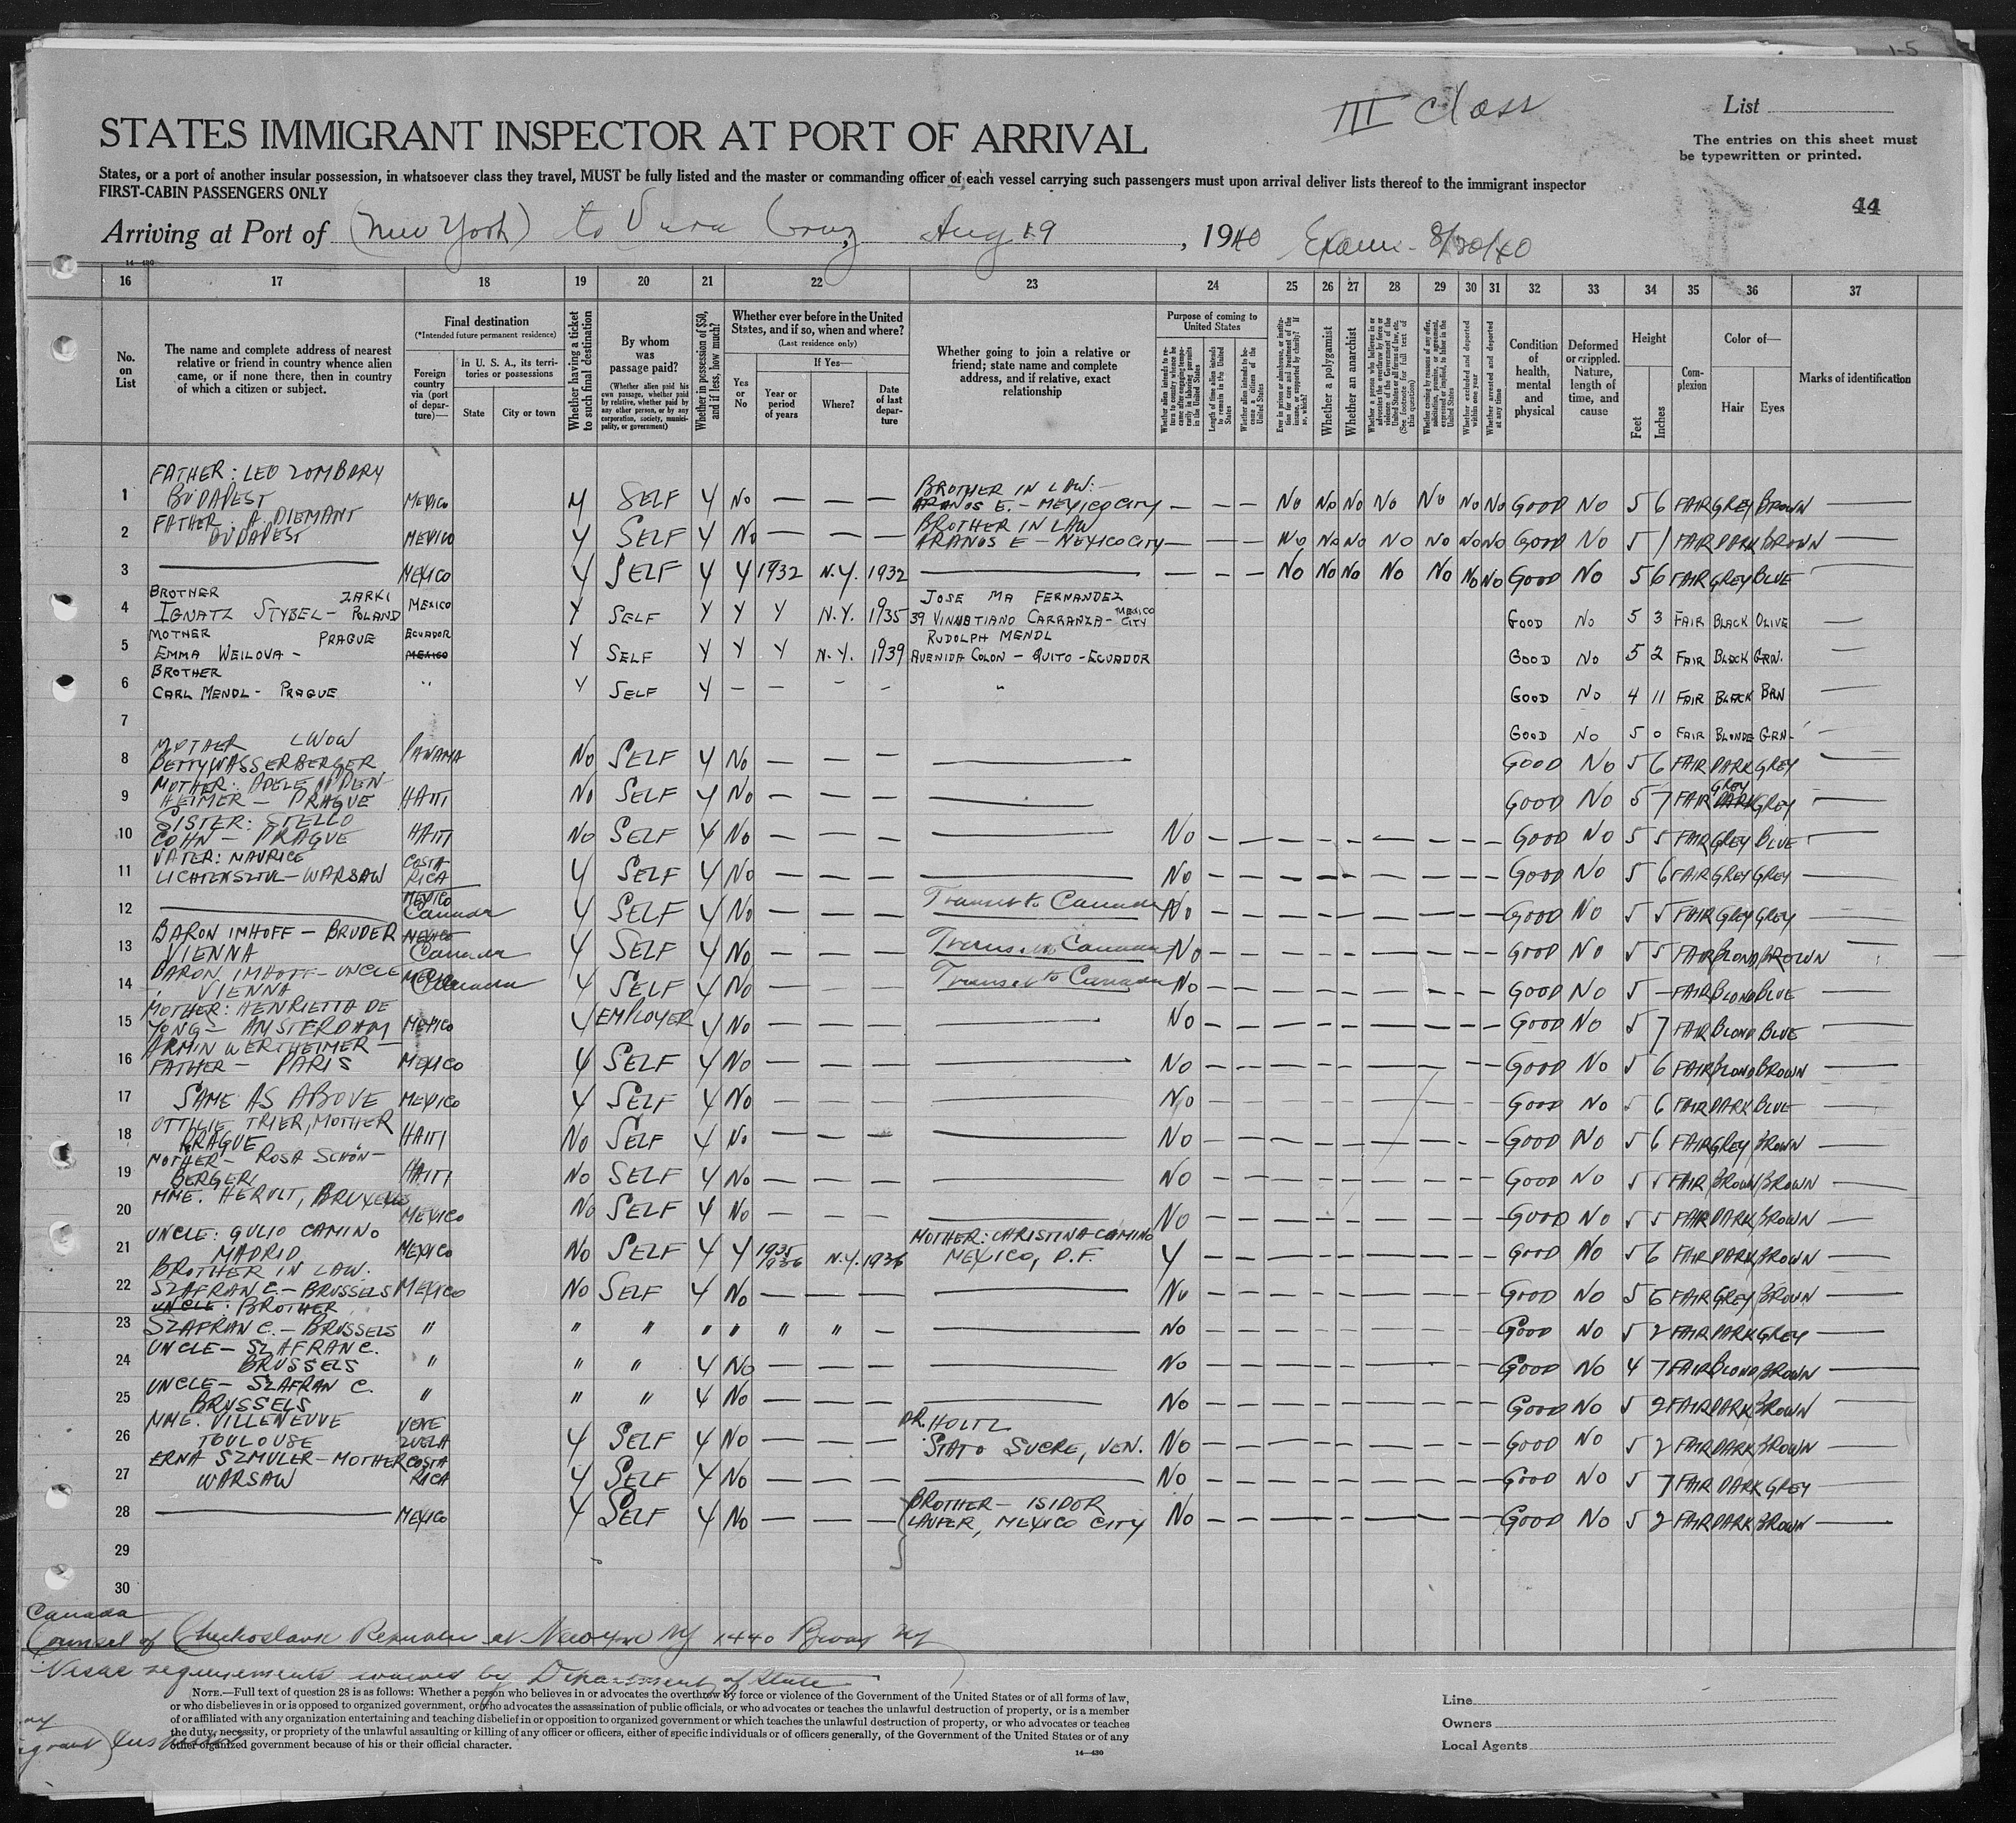 1-5
III Class
List
STATES IMMIGRANT INSPECTOR AT PORT OF ARRIVAL
The entries on this sheet must
be typewritten or printed.
States, or a port of another insular possession, in whatsoever class they travel, MUST be fully listed and the master or commanding officer of each vessel carrying such passengers must upon arrival deliver lists thereof to the immigrant inspector
FIRST-CABIN PASSENGERS ONLY
44
Arriving at Port of (New York) to Vera Cruz, Aug 19, 1940 Exam - 8/20/40
14-430
16 17 18 19 20 21 22 23 24 25 26 27 28 29 30 31 32 33 34 35 36 37
No. on List
The name and complete address of nearest
relative or friend in country whence alien
came, or if none there, then in country
of which a citizen or subject.
Final destination
(*Intended future permanent residence)
Foreign country via (port of departure)—
In U. S. A., its territories or possessions
State
City or town
Whether having a ticket to such final destination
By whom was passage paid?
(Whether alien paid his own passage, whether paid by relative, whether paid by any other person, or by any corporation, society, municipality, or government)
Whether in possession of $50, and if less, how much?
Whether ever before in the United States, and if so, when and where?
(Last residence only)
Yes or No
If Yes—
Year or period of years
Where?
Date of last departure
Whether going to join a relative or
friend; state name and complete
address, and if relative, exact
relationship
Purpose of coming to United States
Whether alien intends to return to country whence he came after engaging temporarily in laboring pursuits in the United States
Length of time alien intends to remain in the United States
Whether alien intends to become a citizen of the United States
Ever in prison or almshouse, or institution for care and treatment of the insane, or supported by charity? If so, which?
Whether a polygamist
Whether an anarchist
Whether a person who believes in or advocates the overthrow by force or violence of the Government of the United States or all forms of law, etc. (See footnote for full text of this question)
Whether coming by reason of any offer, solicitation, promise, or agreement, expressed or implied, to labor in the United States
Whether excluded and deported within one year
Whether arrested and deported at any time
Condition of health, mental and physical
Deformed or crippled. Nature, length of time, and cause
Height
Feet
Inches
Complexion
Color of—
Hair
Eyes
Marks of identification
1 FATHER: LEO ZOMBARY BUDAPEST MEXICO Y SELF Y NO — — — BROTHER IN LAW: ARANOS E. - MEXICO CITY — — — NO NO NO NO NO NO NO GOOD NO 5 6 FAIR GREY BROWN —
2 FATHER: A. DIEMANT BUDAPEST MEXICO Y SELF Y NO — — — BROTHER IN LAW ARANOS E - MEXICO CITY — — — NO NO NO NO NO NO NO GOOD NO 5 1 FAIR DARK BROWN —
3 — MEXICO Y SELF Y Y 1932 N.Y. 1932 — — — — NO NO NO NO NO NO NO GOOD NO 5 6 FAIR GREY BLUE —
4 BROTHER IGNATZ STYBEL - ZARKI POLAND MEXICO Y SELF Y Y Y N.Y. 1935 JOSE MA FERNANDEZ 39 VINNSTIANO CARRANZA - MEXICO CITY GOOD NO 5 3 FAIR BLACK OLIVE —
5 MOTHER EMMA WEILOVA - PRAGUE ECUADOR MEXICO Y SELF Y Y Y N.Y. 1939 RUDOLPH MENDL AVENIDA COLON - QUITO - ECUADOR GOOD NO 5 2 FAIR BLACK GRN. —
6 BROTHER CARL MENDL - PRAGUE " Y SELF Y — — — — " GOOD NO 4 11 FAIR BLACK BRN —
7 GOOD NO 5 0 FAIR BLONDE GRN. —
8 MOTHER LWOW BETTY WASSERBERGER PANAMA NO SELF Y NO — — — — GOOD NO 5 6 FAIR DARK GREY —
9 MOTHER: ADELE OPPENHEIMER - PRAGUE HAITI NO SELF Y NO — — — — GOOD NO 5 7 FAIR GREY DARK GREY —
10 SISTER: STELLO COHN - PRAGUE HAITI NO SELF Y NO — — — — NO — — — — — — — — — GOOD NO 5 5 FAIR GREY BLUE —
11 VATER: MAURICE LICHTENSZTUL - WARSAW COSTA RICA Y SELF Y NO — — — — NO — — — — — — — — — GOOD NO 5 6 FAIR GREY GREY —
12 — MEXICO Canada Y SELF Y NO — — — Transit to Canada NO — — — — — — — — — GOOD NO 5 5 FAIR GREY GREY —
13 BARON IMHOFF - BRUDER VIENNA MEXICO Canada Y SELF Y NO — — — Transit to Canada NO — — — — — — — — — GOOD NO 5 5 FAIR BLOND BROWN —
14 BARON IMHOFF - UNCLE VIENNA MEXICO Canada Y SELF Y NO — — — Transit to Canada NO — — — — — — — — — GOOD NO 5 — FAIR BLOND BLUE —
15 MOTHER: HENRIETTA DE YONG - AMSTERDAM MEXICO Y EMPLOYER Y NO — — — — NO — — — — — — — — — GOOD NO 5 7 FAIR BLOND BLUE —
16 ARMIN WERTHEIMER - FATHER - PARIS MEXICO Y SELF Y NO — — — — NO — — — — — — — — — GOOD NO 5 6 FAIR BLOND BROWN —
17 SAME AS ABOVE MEXICO Y SELF Y NO — — — — NO — — — — — — — — — GOOD NO 5 6 FAIR DARK BLUE —
18 OTTILIE TRIER, MOTHER PRAGUE HAITI NO SELF Y NO — — — — NO — — — — — — — — — GOOD NO 5 6 FAIR GREY BROWN —
19 MOTHER - ROSA SCHÖN-BERGER HAITI NO SELF Y NO — — — — NO — — — — — — — — — GOOD NO 5 5 FAIR BROWN BROWN —
20 MME. HERULT, BRUXELLES MEXICO NO SELF Y NO — — — — NO — — — — — — — — — GOOD NO 5 5 FAIR DARK BROWN —
21 UNCLE: GULIO CAMINO MADRID MEXICO NO SELF Y Y 1935 1936 N.Y. 1936 MOTHER: CHRISTINA CAMINO MEXICO, D.F. Y — — — — — — — — — GOOD NO 5 6 FAIR DARK BROWN —
22 BROTHER IN LAW: SZAFRAN C. - BRUSSELS MEXICO NO SELF Y NO — — — — NO — — — — — — — — — GOOD NO 5 6 FAIR GREY BROWN —
23 UNCLE: BROTHER SZAFRAN C. - BRUSSELS " " " " " " " — — NO — — — — — — — — — GOOD NO 5 2 FAIR DARK GREY —
24 UNCLE - SZAFRAN C. BRUSSELS " " " Y NO — — — — NO — — — — — — — — — GOOD NO 4 7 FAIR BLOND BROWN —
25 UNCLE - SZAFRAN C. BRUSSELS " " " Y NO — — — — NO — — — — — — — — — GOOD NO 5 2 FAIR DARK BROWN —
26 MME. VILLENEUVE TOULOUSE VENEZUELA Y SELF Y NO — — — DR. HOLTZ STATO SUCRE, VEN. NO — — — — — — — — — GOOD NO 5 2 FAIR DARK BROWN —
27 ERNA SZMULER - MOTHER WARSAW COSTA RICA Y SELF Y NO — — — — NO — — — — — — — — — GOOD NO 5 7 FAIR DARK GREY —
28 — MEXICO Y SELF Y NO — — — BROTHER - ISIDOR LAUFER, MEXICO CITY NO — — — — — — — — — GOOD NO 5 2 FAIR DARK BROWN —
29
30
Canada
Counsel of Checkoslavk Republic at New York NY 1440 Bway NY
Visae requirements waived by Department of State
NOTE.—Full text of question 28 is as follows: Whether a person who believes in or advocates the overthrow by force or violence of the Government of the United States or of all forms of law,
or who disbelieves in or is opposed to organized government, or who advocates the assassination of public officials, or who advocates or teaches the unlawful destruction of property, or is a member
of or affiliated with any organization entertaining and teaching disbelief in or opposition to organized government or which teaches the unlawful destruction of property, or who advocates or teaches
the duty, necessity, or propriety of the unlawful assaulting or killing of any officer or officers, either of specific individuals or of officers generally, of the Government of the United States or of any
other organized government because of his or their official character.
14-430
Line
Owners
Local Agents